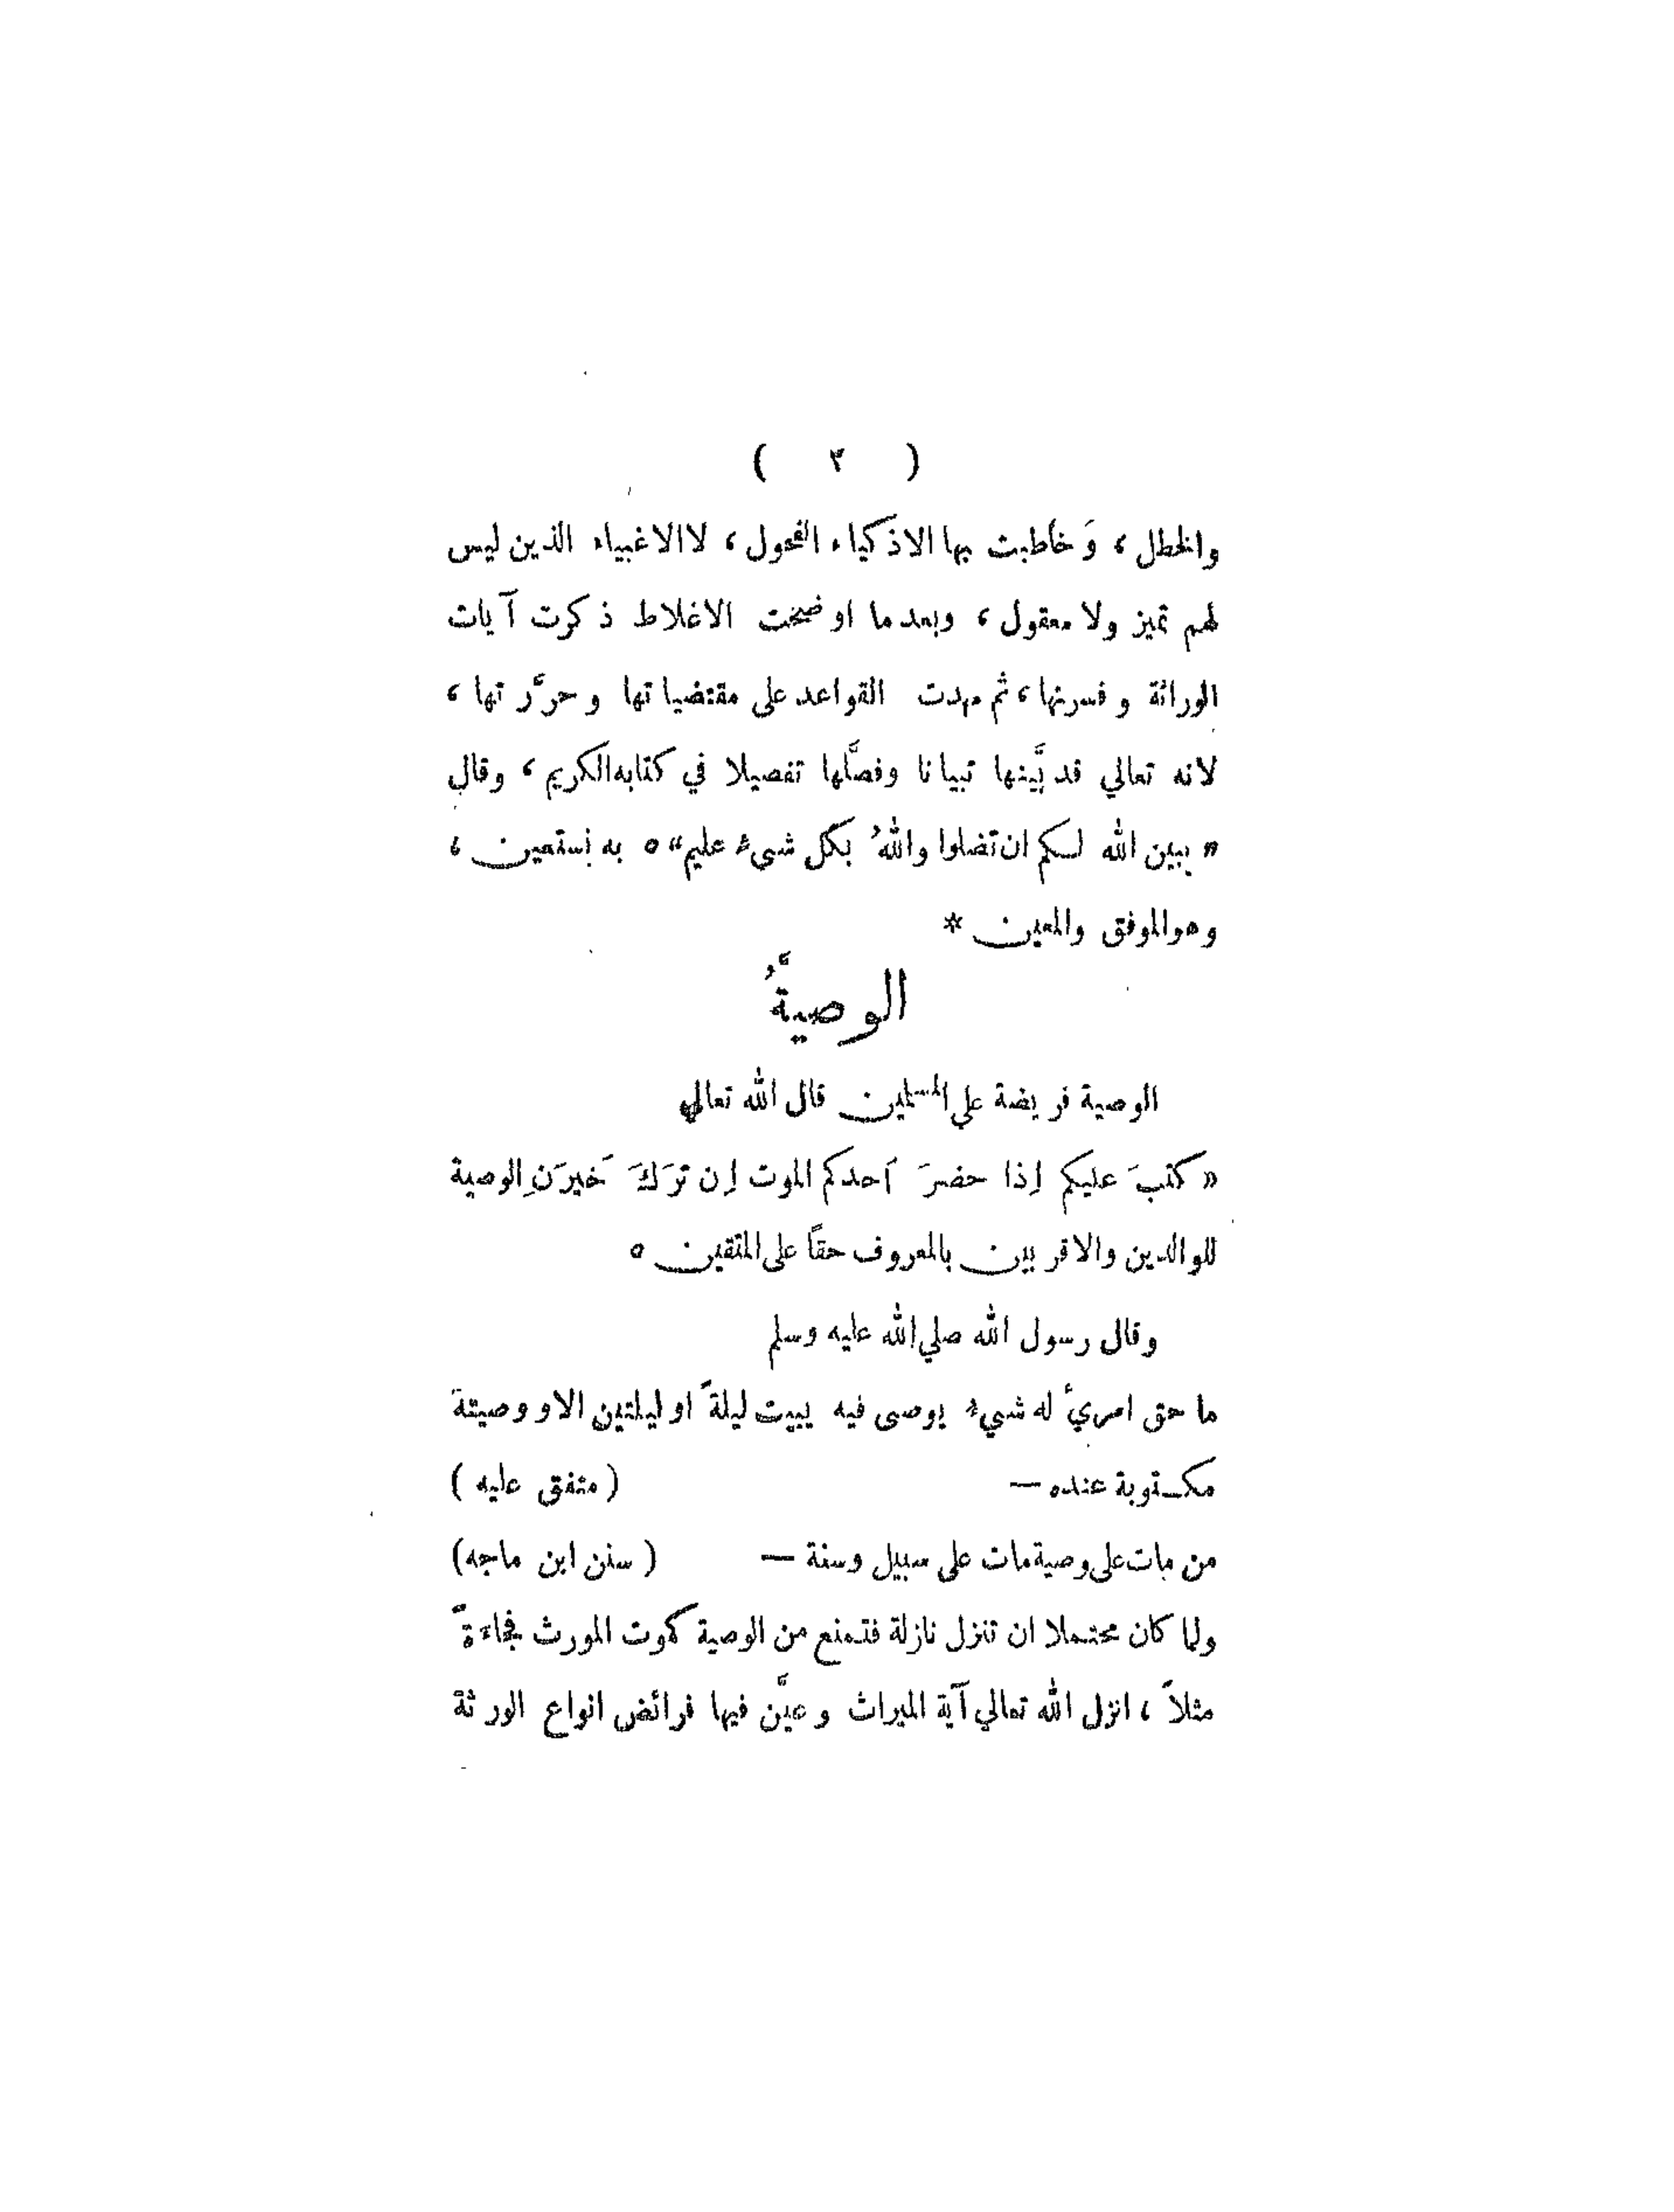 ( ٣ )
والخطل ، وَ خاطبت بها الاذكياء الفحول ، لا الاغبياء الذين ليس
لهم تميز ولا معقول ، وبعد ما اوضحت الاغلاط ذكرت آيات
الوراثة وفسرتها ، ثم مهدت القواعد على مقتضياتها وحرَّرتها ،
لانه تعالي قد بيَّنها تبيانا وفصَّلها تفصيلا في كتابه الكريم ، وقال
« يبين الله لكم ان تضلوا واللهُ بكل شيءٍ عليم » ٥ به نستعين ،
وهو الموفق والمعين *
الوصيَّةُ
الوصية فريضة علي المسلمين قال الله تعالي
« كتبَ عليكم إذا حضرَ اَحدكم الموت إن ترَكَ خَيرَنِ الوصية
للوالدين والاقربين بالمعروف حقاً على المتقين ٥
وقال رسول الله صلي الله عليه وسلم
ما حق امرئ له شيء يوصى فيه يبيت ليلةً او ليلتين الا ووصيتة
مكتوبة عنده — ( متفق عليه )
من مات على وصية مات على سبيل وسنة — ( سنن ابن ماجه )
ولما كان محتملا ان تنزل نازلة فتمنع من الوصية كموت المورث فجاءةً
مثلاً ، انزل الله تعالي آية الميراث وعيَّن فيها فرائض انواع الورثة